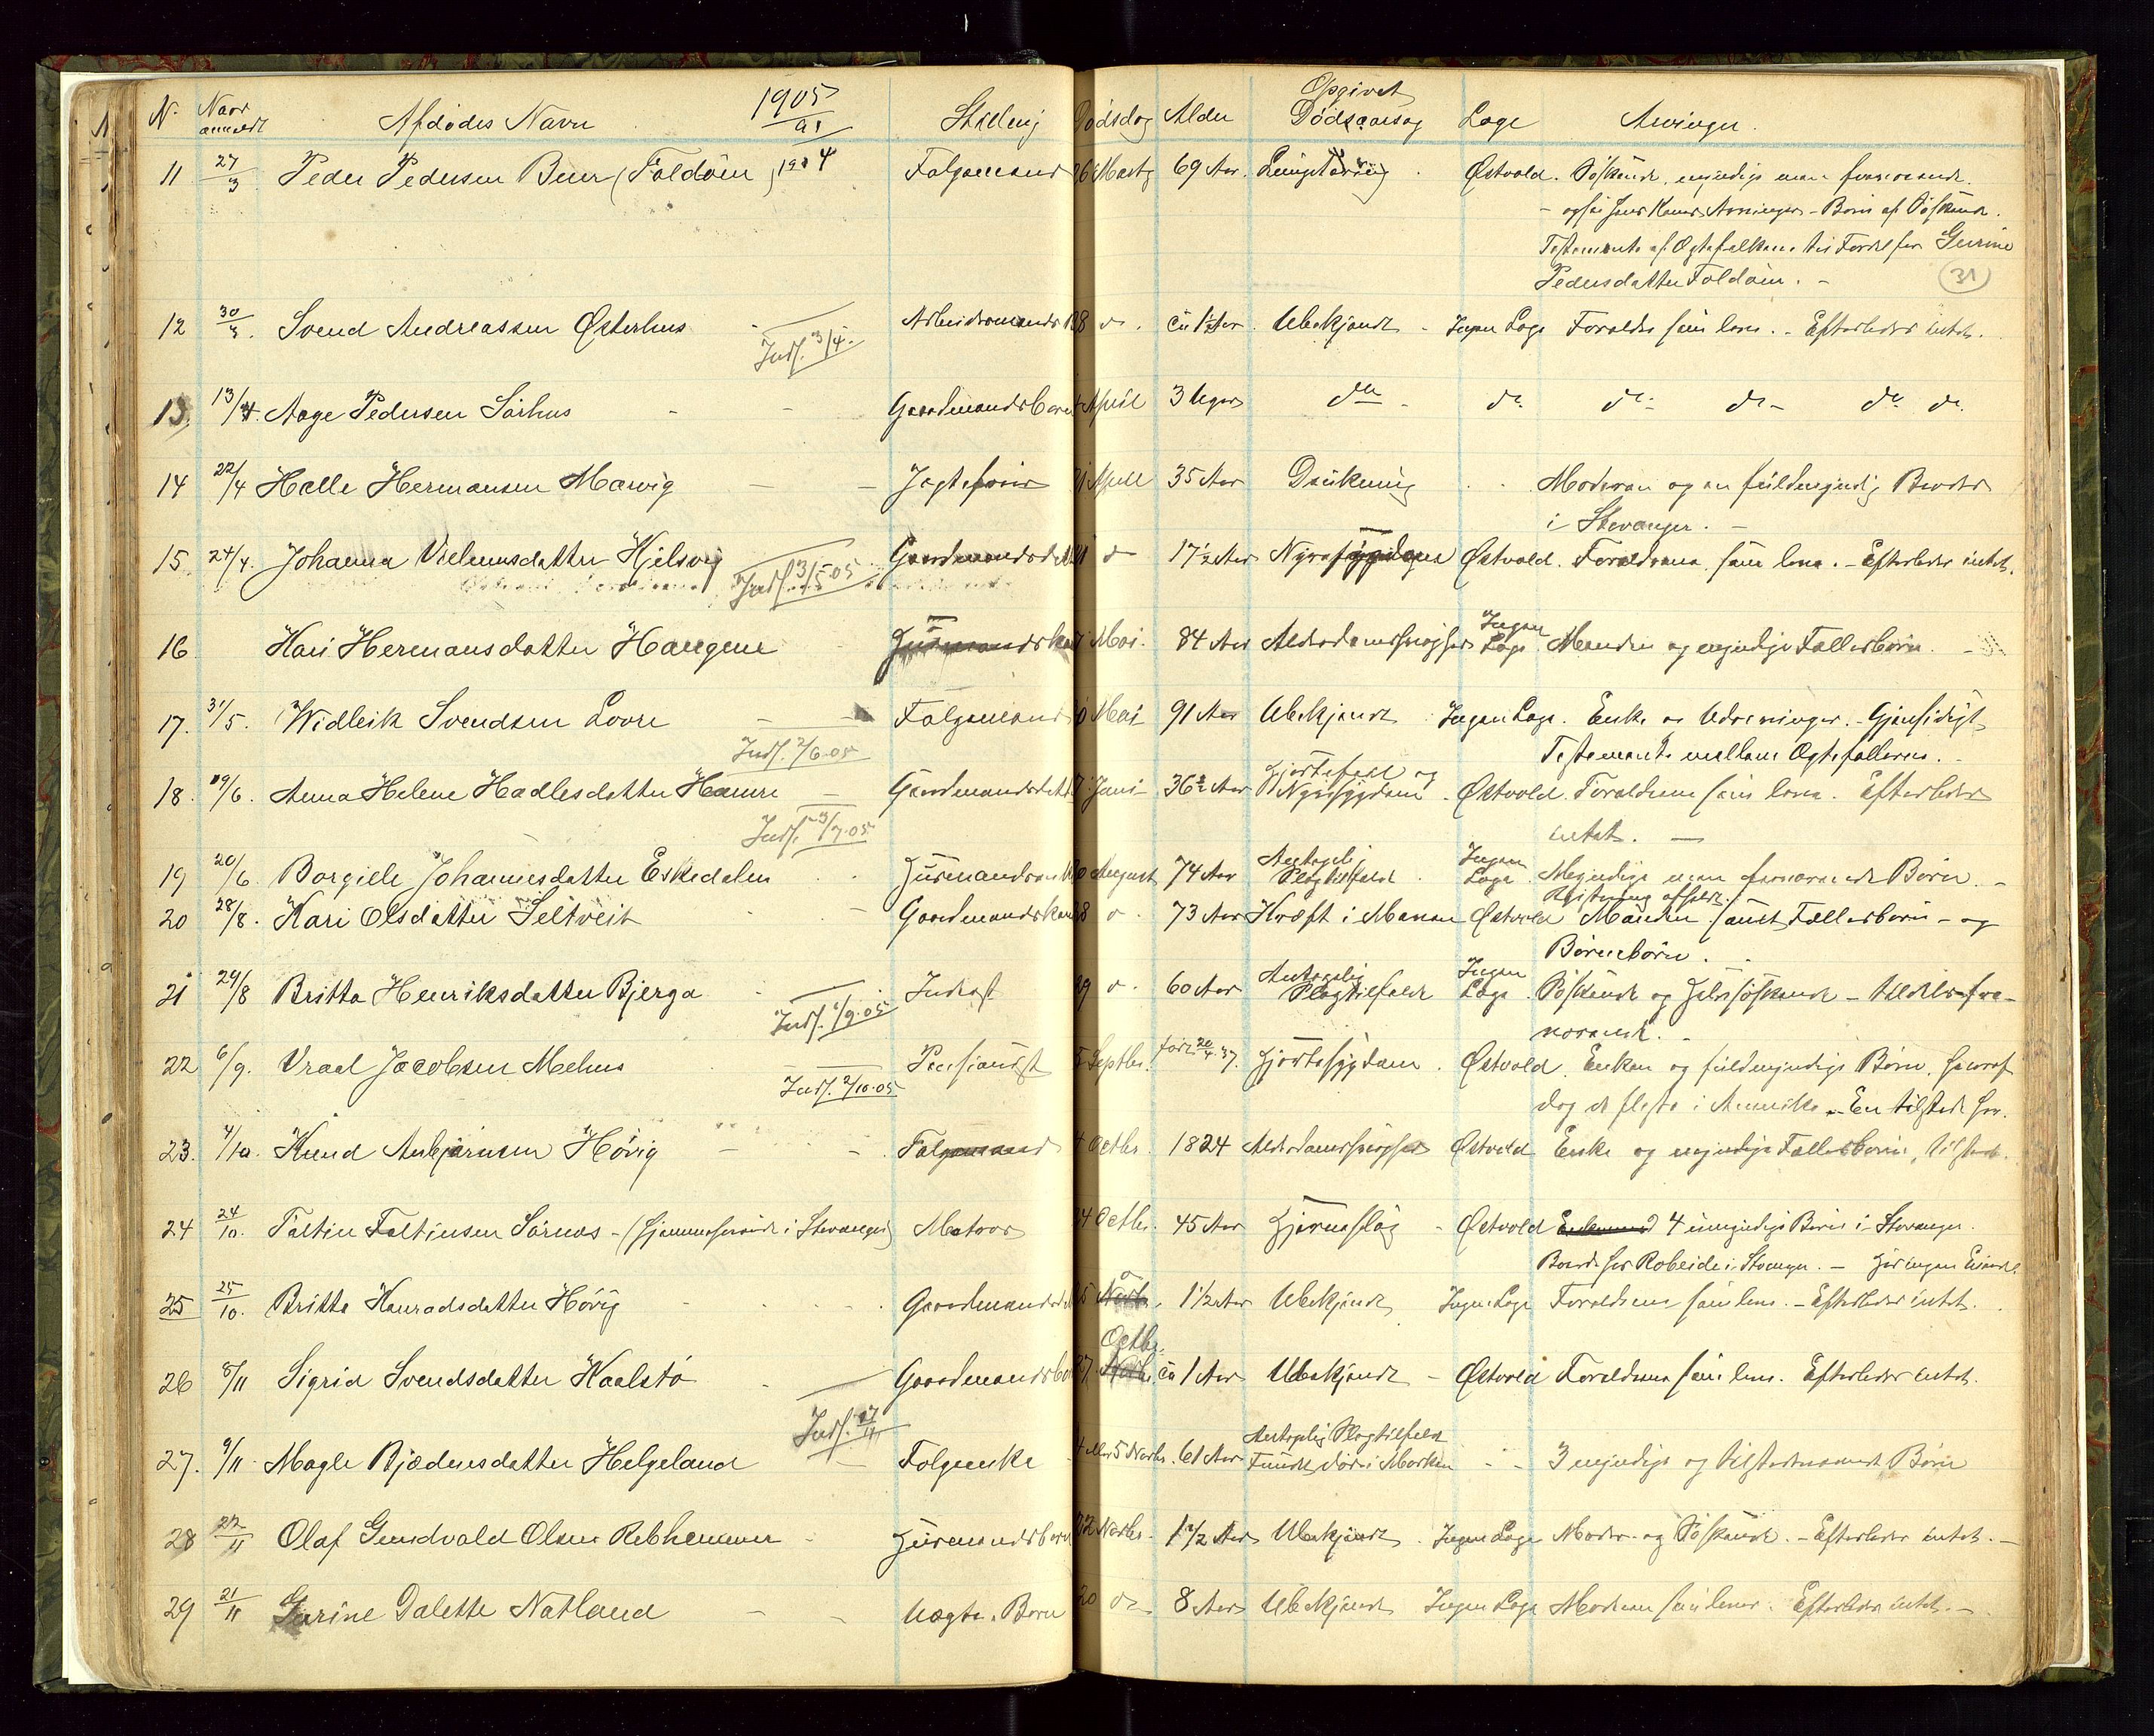 N. Naar anmeldt Afdødes Navn 1905 Stilling Dødsdag Alder Opgivet Dødsaarsag Læge Arvinger.
11 27/3 Peder Pedersen Buer (Foldøen) 1904 Følgemand 26 Marts 69 Aar Østvold. Søskende, myndige
Børn af Søskende.
Testamente af Ægtefolkene til Fordel for Gurine
Pedersdatter Foldøen. -
31
12 30/3. Svend Andreassen Østerhus Arbeidsmands 28 do. ca 1½ Aar. Ubekjendt - Ingen Læge Forældre som leve. - Efterlader intet.
Inds. 3/4.
13. 13/4. Aage Pedersen Sørhus - - Gaardmandsbarn April 3 Uger do - do. do. - do - do do.
14 22/4 Halle Hermansen Marvig - - Jagteskipper 21 April 35 Aar Drukning Moderen og en fuldmyndig Broder
i Stavanger. -
15. 24/4. Johanna Vielumsdatter Hjelsvig Gaardmandsdatter do 17½ Aar Nyresygdom Østvold. Forældrene som leve. - Efterlader intet.
Inds. 3/5 05
16 Kari Hermansdatter Haugene Husmandskone Mai. 84 Aar Alderdomssvaghed Ingen Læge Manden og myndige Fællesbørn. -
17. 31/5. Widleik Svendsen Lovre - - Følgemand Mai 91 Aar Ubekjendt Ingen Læge. Enke og Udarvinger. - Gjensidigt
Inds. 2/6.05 Testamente mellem Ægtefolkene. -
18. 19/6. Anna Helene Hadlesdatter Hamre - Gaardmandsdatter Juni 36½ Aar Hjertefeil og Nyresygdom. Østvold. Forældrene som leve. Efterlader
Inds. 3/7.05 intet. -
19 20/6 Borgille Johannesdatter Eskedalen Husmandsenke August 74 Aar Antagelig Slagtilfælde. Ingen Læge. Myndige nærværende Børn. -
20 28/8. Kari Olsdatter Seltveit Gaardmandskone 28 do. 73 Aar Kræft i Maven Østvold Manden samt Fællesbørn - og
Børnebørn. -
21 29/8 Britta Henriksdatter Bjerga Inderst 29 do. 60 Aar Antagelig Slagtilfælde Ingen Læge. Søskende og Halvsøskende - Alle fra-
Inds. 1/9.05 værende. -
22 6/9. Vraal Jacobsen Mehus Pensionist 5 Septbr. født 20/4 37. Hjertesygdom. Østvold. Enken og fuldmyndige Børn, hvoraf
Inds. 2/10.05 dog de fleste i Amerika. - En tilstede her.
23. 4/10. Knud Anbjørnsen Høvig - - Følgemand 4 Octbr. 1824 Alderdomssvaghed Østvold Enke og myndige Fællesbørn, tilstede.
24 24/10. Taltin Faltinsen Sørnes - (Hjemmehørende i Stavanger) Matros 24 Octbr. 45 Aar Hjerneslag - Østvold Enkemand 4 umyndige Børn i Stavanger.
i Stavanger. - Har ingen Eiendele.
25 25/10. Britta Konradsdatter Høvig Gaardmandsdatter 25 Novbr. 1½ Aar Ubekjendt Ingen Læge Forældrene som leve. - Efterlader intet.
26 8/11 Sigrid Svendsdatter Kaalstø Gaardmandsbarn 27. Octbr. Novbr. ca 1 Aar Ubekjendt - Østvold Forældrene som leve. Efterlader intet.
Inds. 17/11
27. 9/11 Magle Bjædnesdatter Helgeland - Følgeenke 4 eller 5 Novbr. 61 Aar Antagelig Slagtilfælde Funden død i Marken - - 3 myndige og tilstedeværende Børn
28 22/11 Olaf Gundvald Olsen Rebhemmer Husmandsbarn 22 Novbr. 1½ Aar Ubekjendt. Ingen Læge Moder og Søskende. - Efterlader intet. -
29 21/11 Gurine Dalette Natland - - Uægte. Barn 20 do 8 Aar Ubekjendt Ingen Læge Moderen som lever. Efterlader intet. -